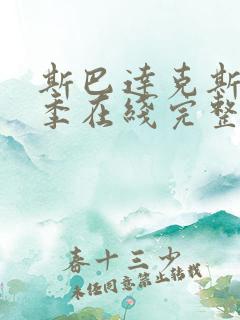 斯巴達克斯
季在綫完整
春十三少
未经同意禁止转载